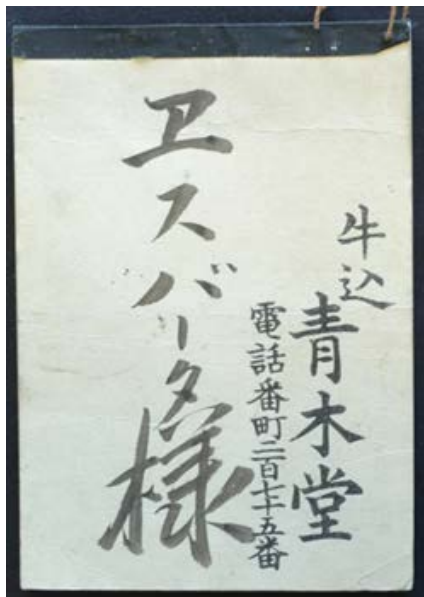 牛込
青木堂
電話番町二百七十五番
ヱスバータ様